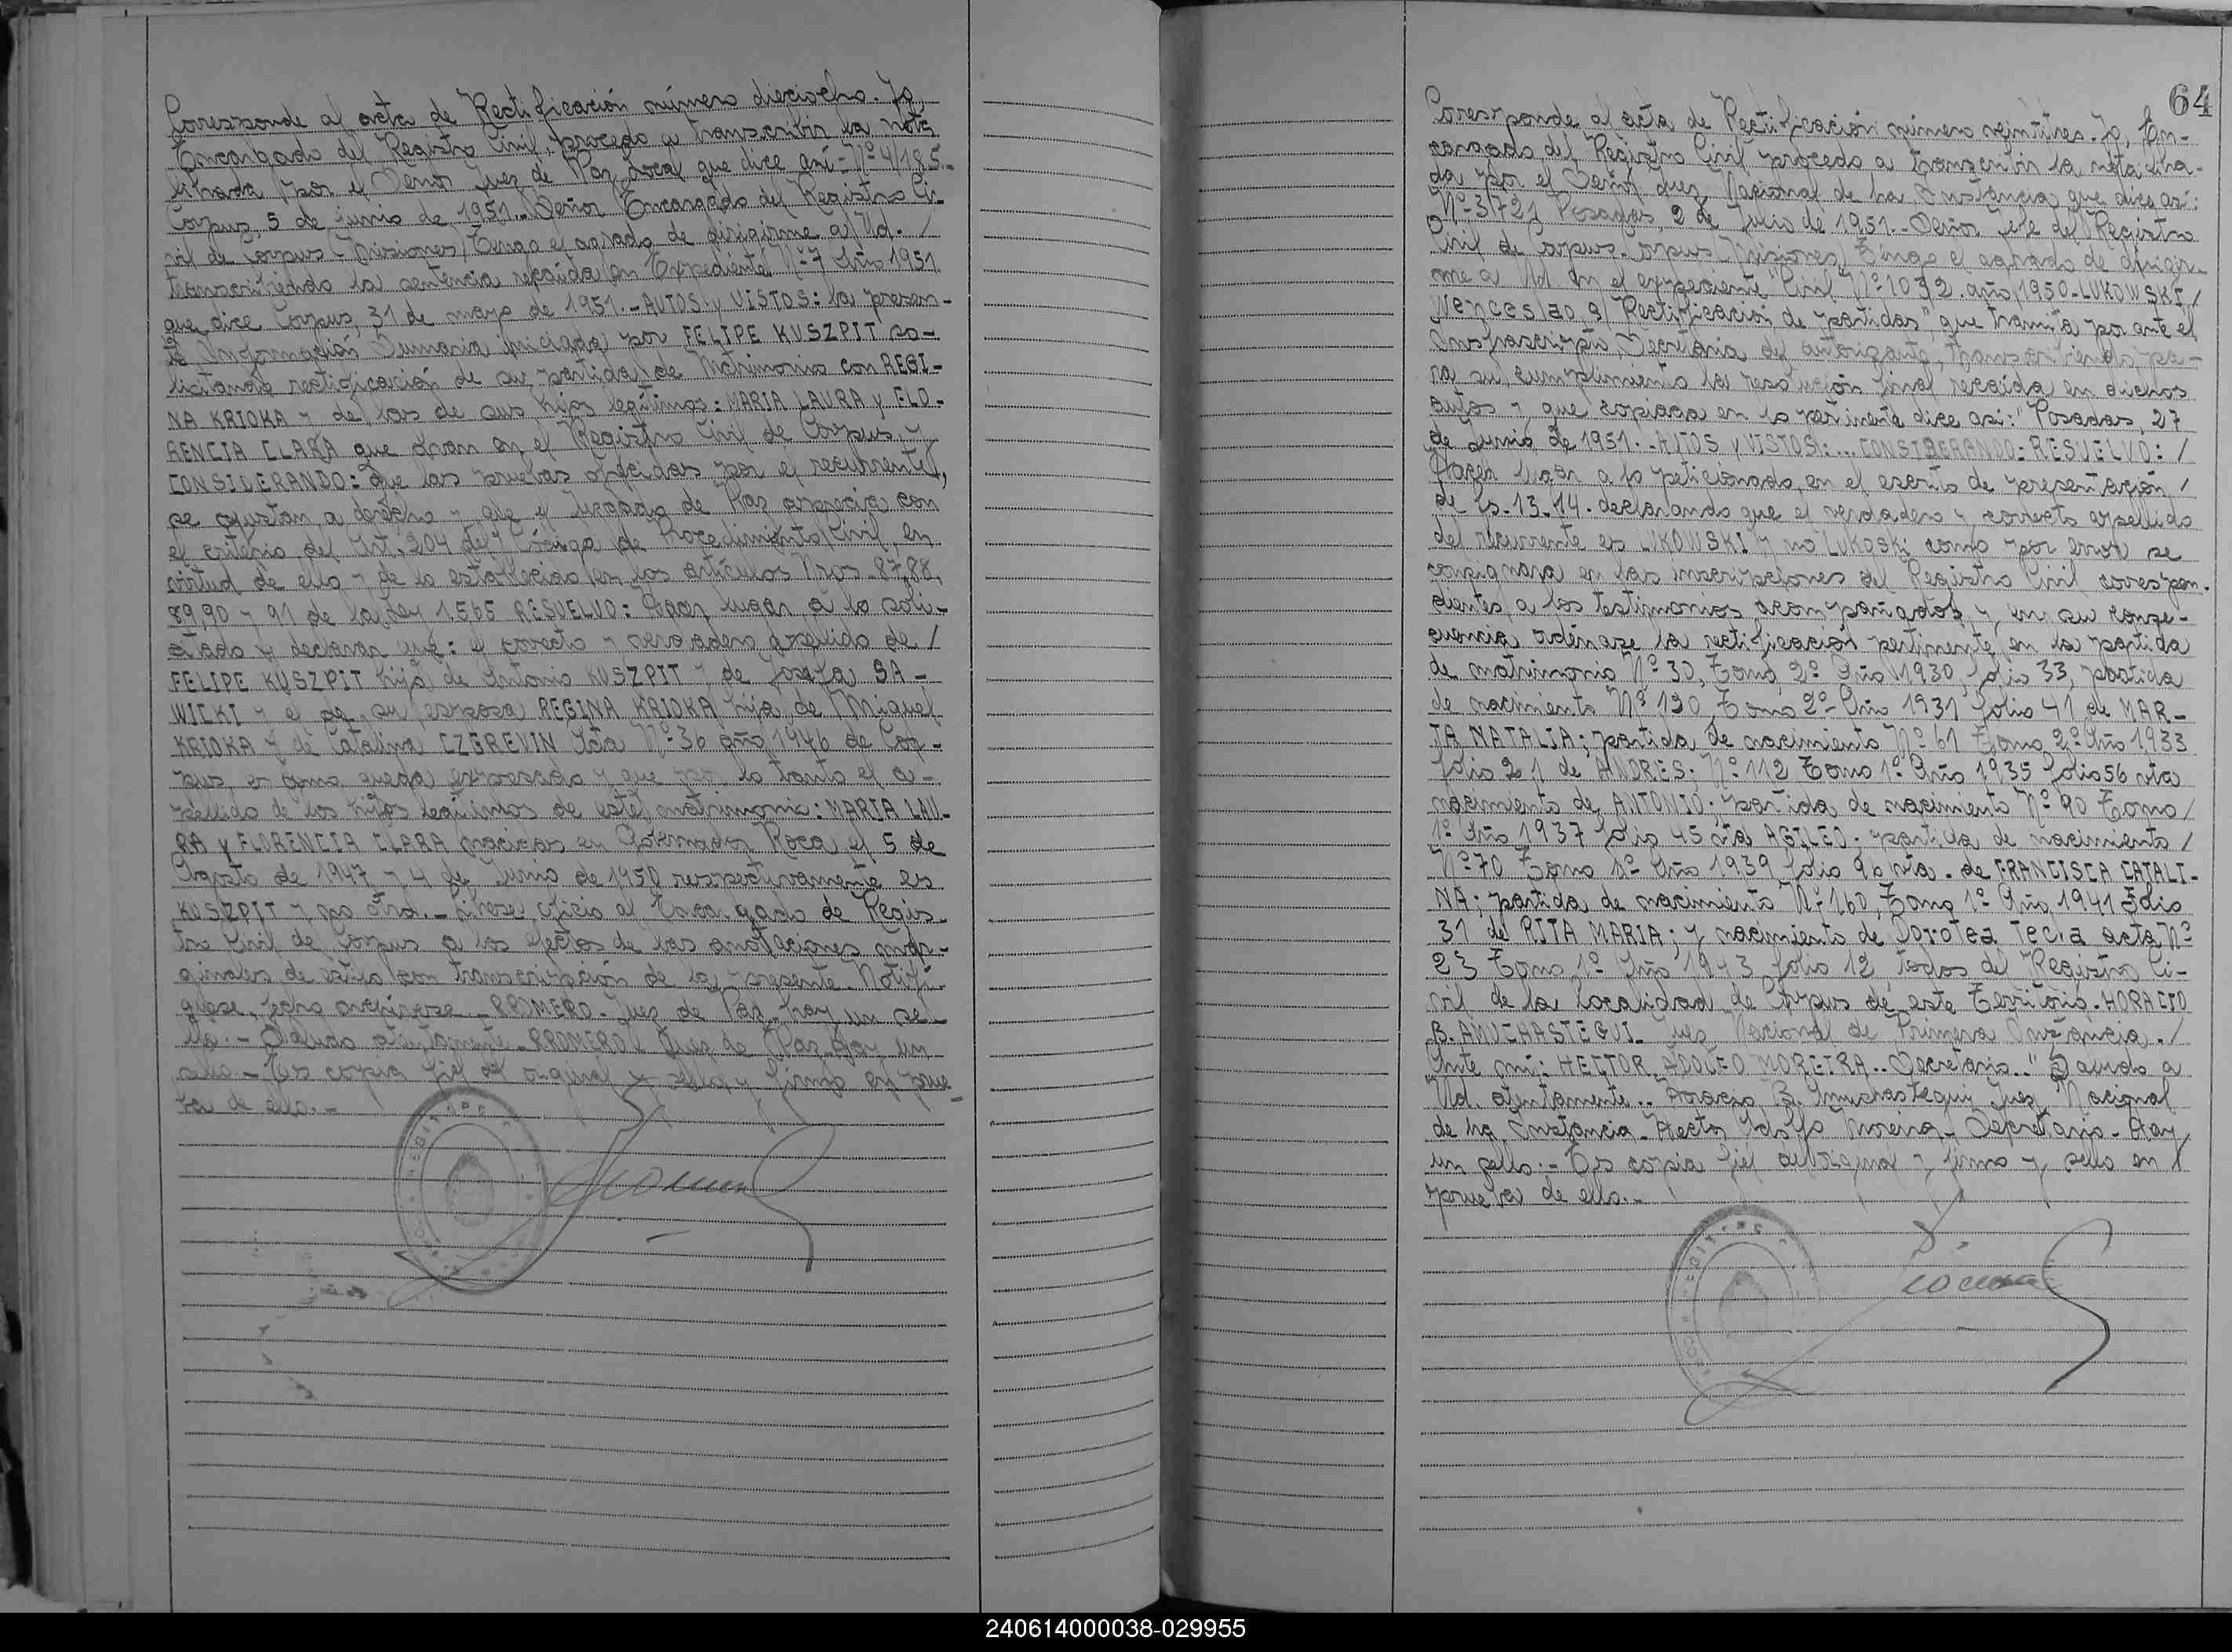 Corresponde al acta de Rectificación número dieciocho. Yo,
Encargado del Registro Civil, procedo a transcribir la nota
librada por el Señor Juez de Paz Local que dice así:- Nº 4/185.-
Corpus, 5 de junio de 1951.- Señor Encargado del Registro Ci-
vil de Corpus (Misiones) Tengo el agrado de dirigirme a Ud. /
transcribiendo la sentencia recaída en Expediente Nº 7 Año 1951.
que dice Corpus, 31 de mayo de 1951.- AUTOS y VISTOS: la presen-
te Información Sumaria iniciada por FELIPE KUSZPIT so-
licitando rectificación de su partida de Matrimonio con REGI-
NA KRIOKA y de las de sus hijos legítimos: MARIA LAURA y FLO-
RENCIA CLARA que obran en el Registro Civil de Corpus, y
CONSIDERANDO: Que las pruebas ofrecidas por el recurrente,
se ajustan a derecho y que el Juzgado de Paz aprecia con
el criterio del Art. 204 del Código de Procedimiento Civil, en
virtud de ello y de lo establecido en los artículos Nros. 87,88,
89,90 y 91 de la Ley 1.565 RESUELVO: Hacer lugar a lo soli-
citado y declarar que: el correcto y verdadero apellido de /
FELIPE KUSZPIT hijo de Antonio KUSZPIT y de Josefa SA-
WICKI y el de su esposa REGINA KRIOKA hija de Miguel
KRIOKA y de Catalina CZGREVIN Acta Nº 36 año 1946 de Cor-
pus, es como queda expresado y que por lo tanto el a-
pellido de los hijos legítimos de este matrimonio: MARIA LAU-
RA y FLORENCIA CLARA nacidas en Gobernador Roca el 5 de
Agosto de 1947 y 4 de Junio de 1950 respectivamente es
KUSZPIT y no otro.- Líbrese oficio al Encargado de Regis-
tro Civil de Corpus a los efectos de las anotaciones mar-
ginales de estilo con transcripción de la presente. Notifí-
quese, fecho archívese.- ROMERO- Juez de Paz- hay un se-
llo.- Saludo atentamente- ROMERO- Juez de Paz- Hay un
sello.- Es copia fiel del original y sello y firmo en prue-
ba de ello.-
64
Corresponde al acta de Rectificación número veintitres. Yo, En-
cargado del Registro Civil procedo a transcribir la nota libra-
da por el Señor Juez Nacional de 1ra Instancia que dice así:
Nº 3/721 Posadas, 2 de Julio de 1951.- Señor Jefe del Registro
Civil de Corpus.- Corpus (Misiones) Tengo el agrado de dirigir-
me a Ud. en el expediente Civil Nº 1032. año 1950- LUKOWSKI /
Wenceslao s/ Rectificación de partidas", que tramita por ante el
Infrascripto, Secretaría del autorizante, transcribiendo, pa-
ra su cumplimiento la resolución final recaída en dichos
autos y que copiada en lo pertinente dice así: "Posadas, 27
de Junio de 1951.- AUTOS y VISTOS:... CONSIDERANDO: RESUELVO: /
Hacer lugar a lo peticionado en el escrito de presentación /
de fs. 13_14. declarando que el verdadero y correcto apellido
del recurrente es LUKOWSKI y no Lukoski como por error se
consignara en las inscripciones del Registro Civil correspon-
dientes a los testimonios acompañados y en su conse-
cuencia ordénase la rectificación pertinente en la partida
de matrimonio Nº 30, Tomo 2º Año 1930, folio 33, partida
de nacimiento Nº 130 Tomo 2º Año 1931 folio 41 de MAR-
TA NATALIA; partida de nacimiento Nº 61 Tomo 2º Año 1933
folio 21 de ANDRES; Nº 112 Tomo 1º Año 1935 folio 56 vta
nacimiento de ANTONIO; partida de nacimiento Nº 90 Tomo /
1º Año 1937 folio 45 vta AGILEO; partida de nacimiento /
Nº 70 Tomo 1º Año 1939 folio 96 vta. de FRANCISCA CATALI-
NA; partida de nacimiento Nº 160, Tomo 1º Año 1941 Folio
31 de RITA MARIA; y nacimiento de Dorotea Tecla acta Nº
23 Tomo 1º Año 1943 folio 12 todos del Registro Ci-
vil de la localidad de Corpus de este Territorio. HORACIO
B. AMUCHASTEGUI- Juez Nacional de Primera Instancia. /
Ante mí: HECTOR ADOLFO MOREIRA.. Secretario.." Saludo a
Ud. atentamente.. Horacio B. Amuchastegui Juez Nacional
de 1ra. Instancia- Hector Adolfo Moreira- Secretario- Hay
un sello.- Es copia fiel del original y firmo y sello en /
prueba de ello.-
240614000038-029955